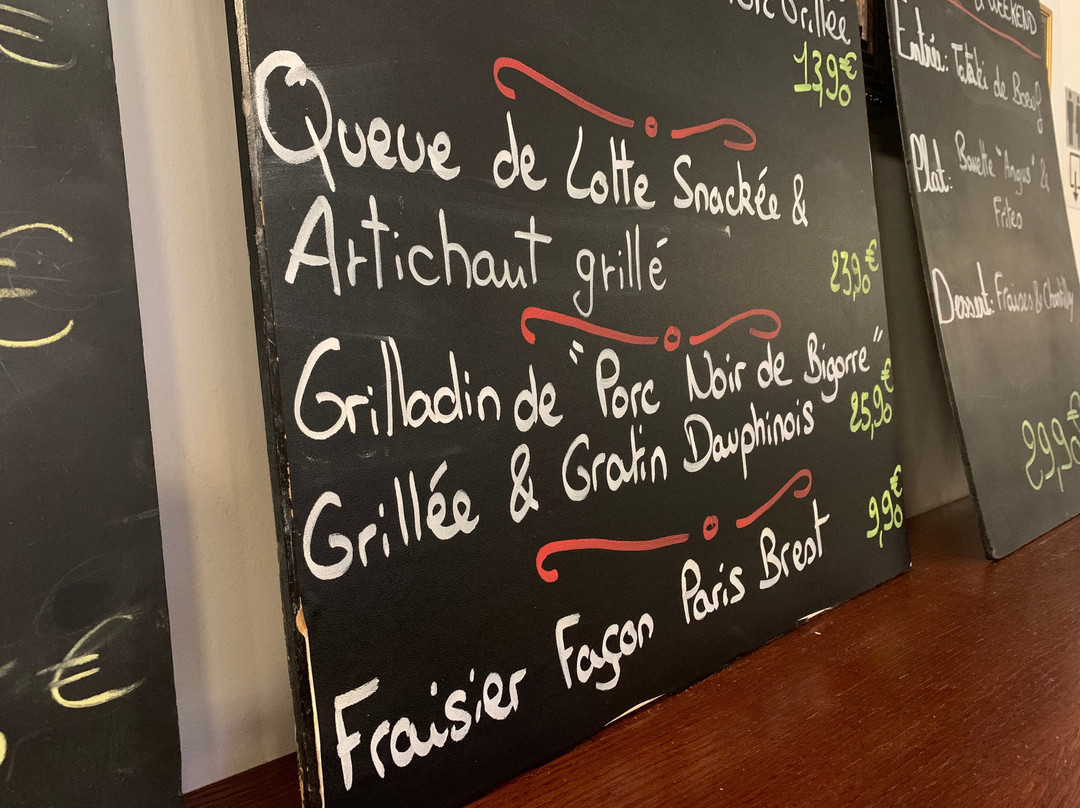 Grillée
13,90€
Queue de Lotte Snackée &
Artichaut grillé
23,90€
Grilladin de "Porc Noir de Bigorre"
Grillée & Gratin Dauphinois
25,90€
Fraisier Façon Paris Brest
9,90€
WEEKEND
Entrée: Tataki de Boeuf
Plat: Bavette "Angus" &
Frites
Dessert: Fraises & Chantilly
29,90€
€
€